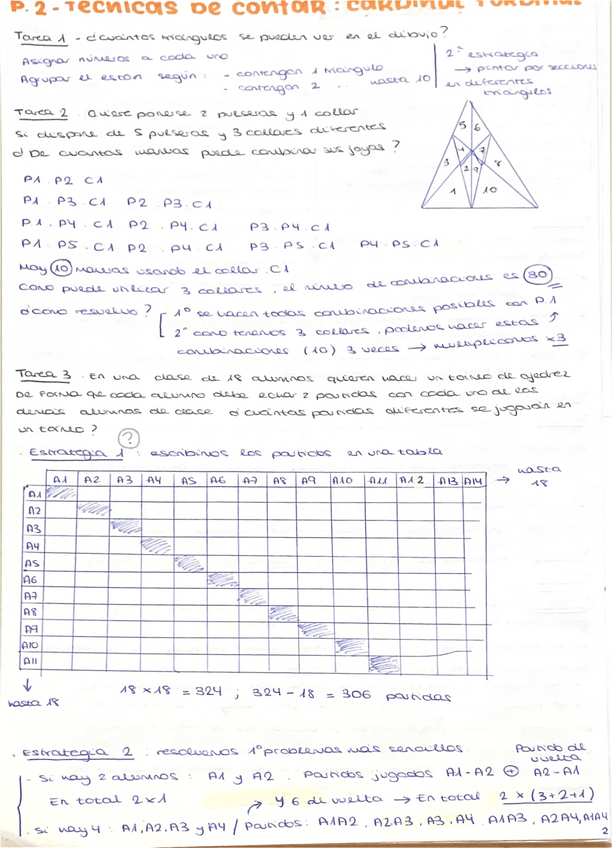 P.2 - TÉCNICAS DE CONTAR : CARDINAL Y ORDINAL
Tarea 1 - ¿Cuántos triángulos se pueden ver en el dibujo?
Asignar números a cada uno
Agrupar el están según : - contengan 1 triángulo
- contengan 2 ... hasta 10
2ª estrategia
→ pintar por secciones
en diferentes
triángulos
Tarea 2 . Quiere ponerse 2 pulseras y 1 collar
Si dispone de 5 pulseras y 3 collares diferentes
¿De cuántas maneras puede combinar sus joyas?
5 6
3 4 7 8
2 9
1 10
P1 . P2 . C1
P1 . P3 . C1 P2 . P3 . C1
P1 . P4 . C1 P2 . P4 . C1 P3 . P4 . C1
P1 . P5 . C1 P2 P4 C1 P3 . P5 . C1 P4 . P5 . C1
Hay 10 maneras usando el collar C1
Como puede utilizar 3 collares, el número de combinaciones es 30
¿Cómo resuelvo? 1º se hacen todas combinaciones posibles con P.1
2º como tenemos 3 collares, podemos hacer estas
combinaciones (10) 3 veces → multiplicamos x3
Tarea 3 . En una clase de 18 alumnos quieren hacer un torneo de ajedrez
De forma que cada alumno debe echar 2 partidas con cada uno de los
demás alumnos de clase ¿Cuántas partidas diferentes se jugarán en
un torneo?
?
. Estrategia 1 : escribimos los partidos en una tabla
A1 A2 A3 A4 A5 A6 A7 A8 A9 A10 A11 A12 A13 A14 → hasta 18
A1
A2
A3
A4
A5
A6
A7
A8
A9
A10
A11
↓
hasta 18
18 x 18 = 324 ; 324 - 18 = 306 partidas
. Estrategia 2 : resolvemos 1º problemas más sencillos
Partido de
vuelta
- Si hay 2 alumnos : A1 y A2 . Partidos jugados A1-A2 + A2-A1
En total 2x1
Y 6 de vuelta → En total 2 x (3+2+1)
. Si hay 4 : A1, A2, A3 y A4 / Partidos : A1A2 . A2A3 . A3 . A4 . A1A3 , A2A4, A1A4
2